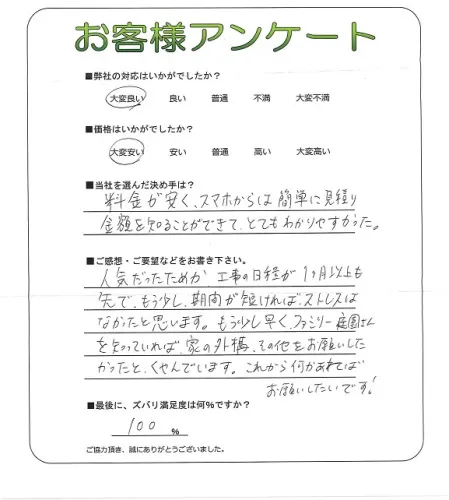 お客様アンケート
■弊社の対応はいかがでしたか？
大変良い 良い 普通 不満 大変不満
■価格はいかがでしたか？
大変安い 安い 普通 高い 大変高い
■当社を選んだ決め手は？
料金が安く、スマホからは簡単に見積り
金額を知ることができて、とてもわかりやすかった。
■ご感想・ご要望などをお書き下さい。
人気だったためか 工事の日経が 1ヶ月以上も
先で、もう少し、期間が短ければ、ストレスは
なかったと思います。もう少し早く、ファミリー庭園さん
を知っていれば、家の外構、その他をお願いした
かったと、くやんでいます。これから何かあれば
お願いしたいです！
■最後に、ズバリ満足度は何%ですか？
100 %
ご協力頂き、誠にありがとうございました。